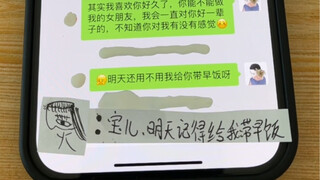 其实我喜欢你好久了，你能不能做
我的女朋友，我会一直对你好一辈
子的，不知道你对我有没有感觉
明天还用不用我给你带早饭呀
：宝儿、明天记得给我带早饭